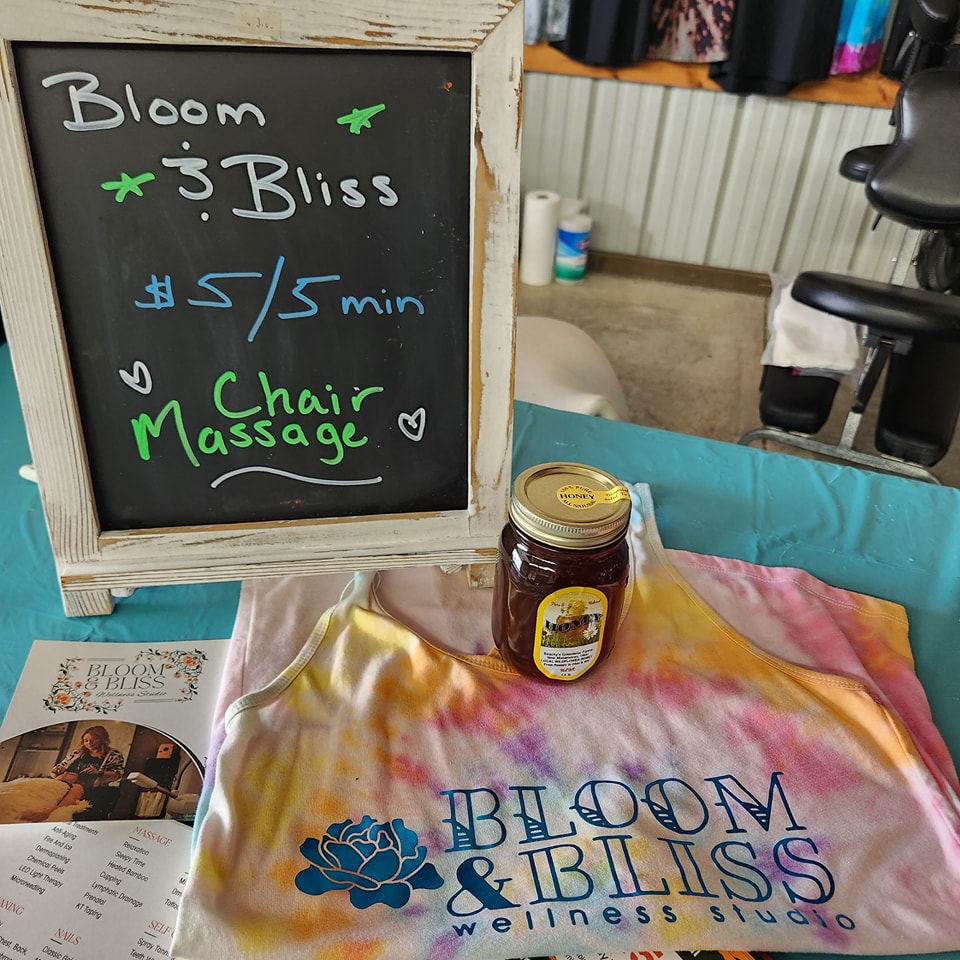 Bloom
& Bliss
$5/5 min
Chair
Massage
100% PURE
HONEY
ALL NATURAL
HONEY
LOCAL WILDFLOWER HONEY
BLOOM
& BLISS
Wellness Studio
Treatments
Anti-Aging
Fire And Ice
Dermaplaning
Chemical Peels
LED Light Therapy
Microneedling
MASSAGE
Relaxation
Sleepy Time
Heated Bamboo
Cupping
Lymphatic Drainage
Prenatal
KT Taping
NAILS
SELF
Spray Tann
BLOOM
& BLISS
wellness studio